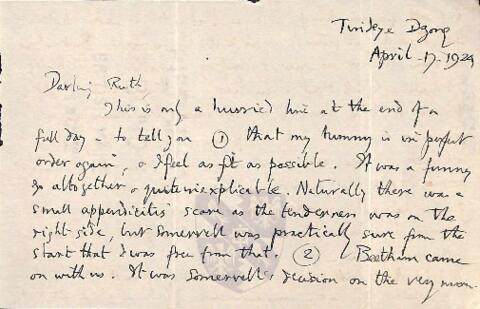 Dzong
April-17-1924
Darling Ruth,
This is only a hurried line at the end of a
full day - to tell you (1) that my tummy is in perfect
order again, & I feel as fit as possible. It was a funny
go altogether & quite inexplicable. Naturally there was a
small appendicitis scare as the tenderness was on the
right side, but Somervell was practically sure from the
start that I was free from that. (2) Beetham came
on with us. It was Somervell's decision on the very morn-